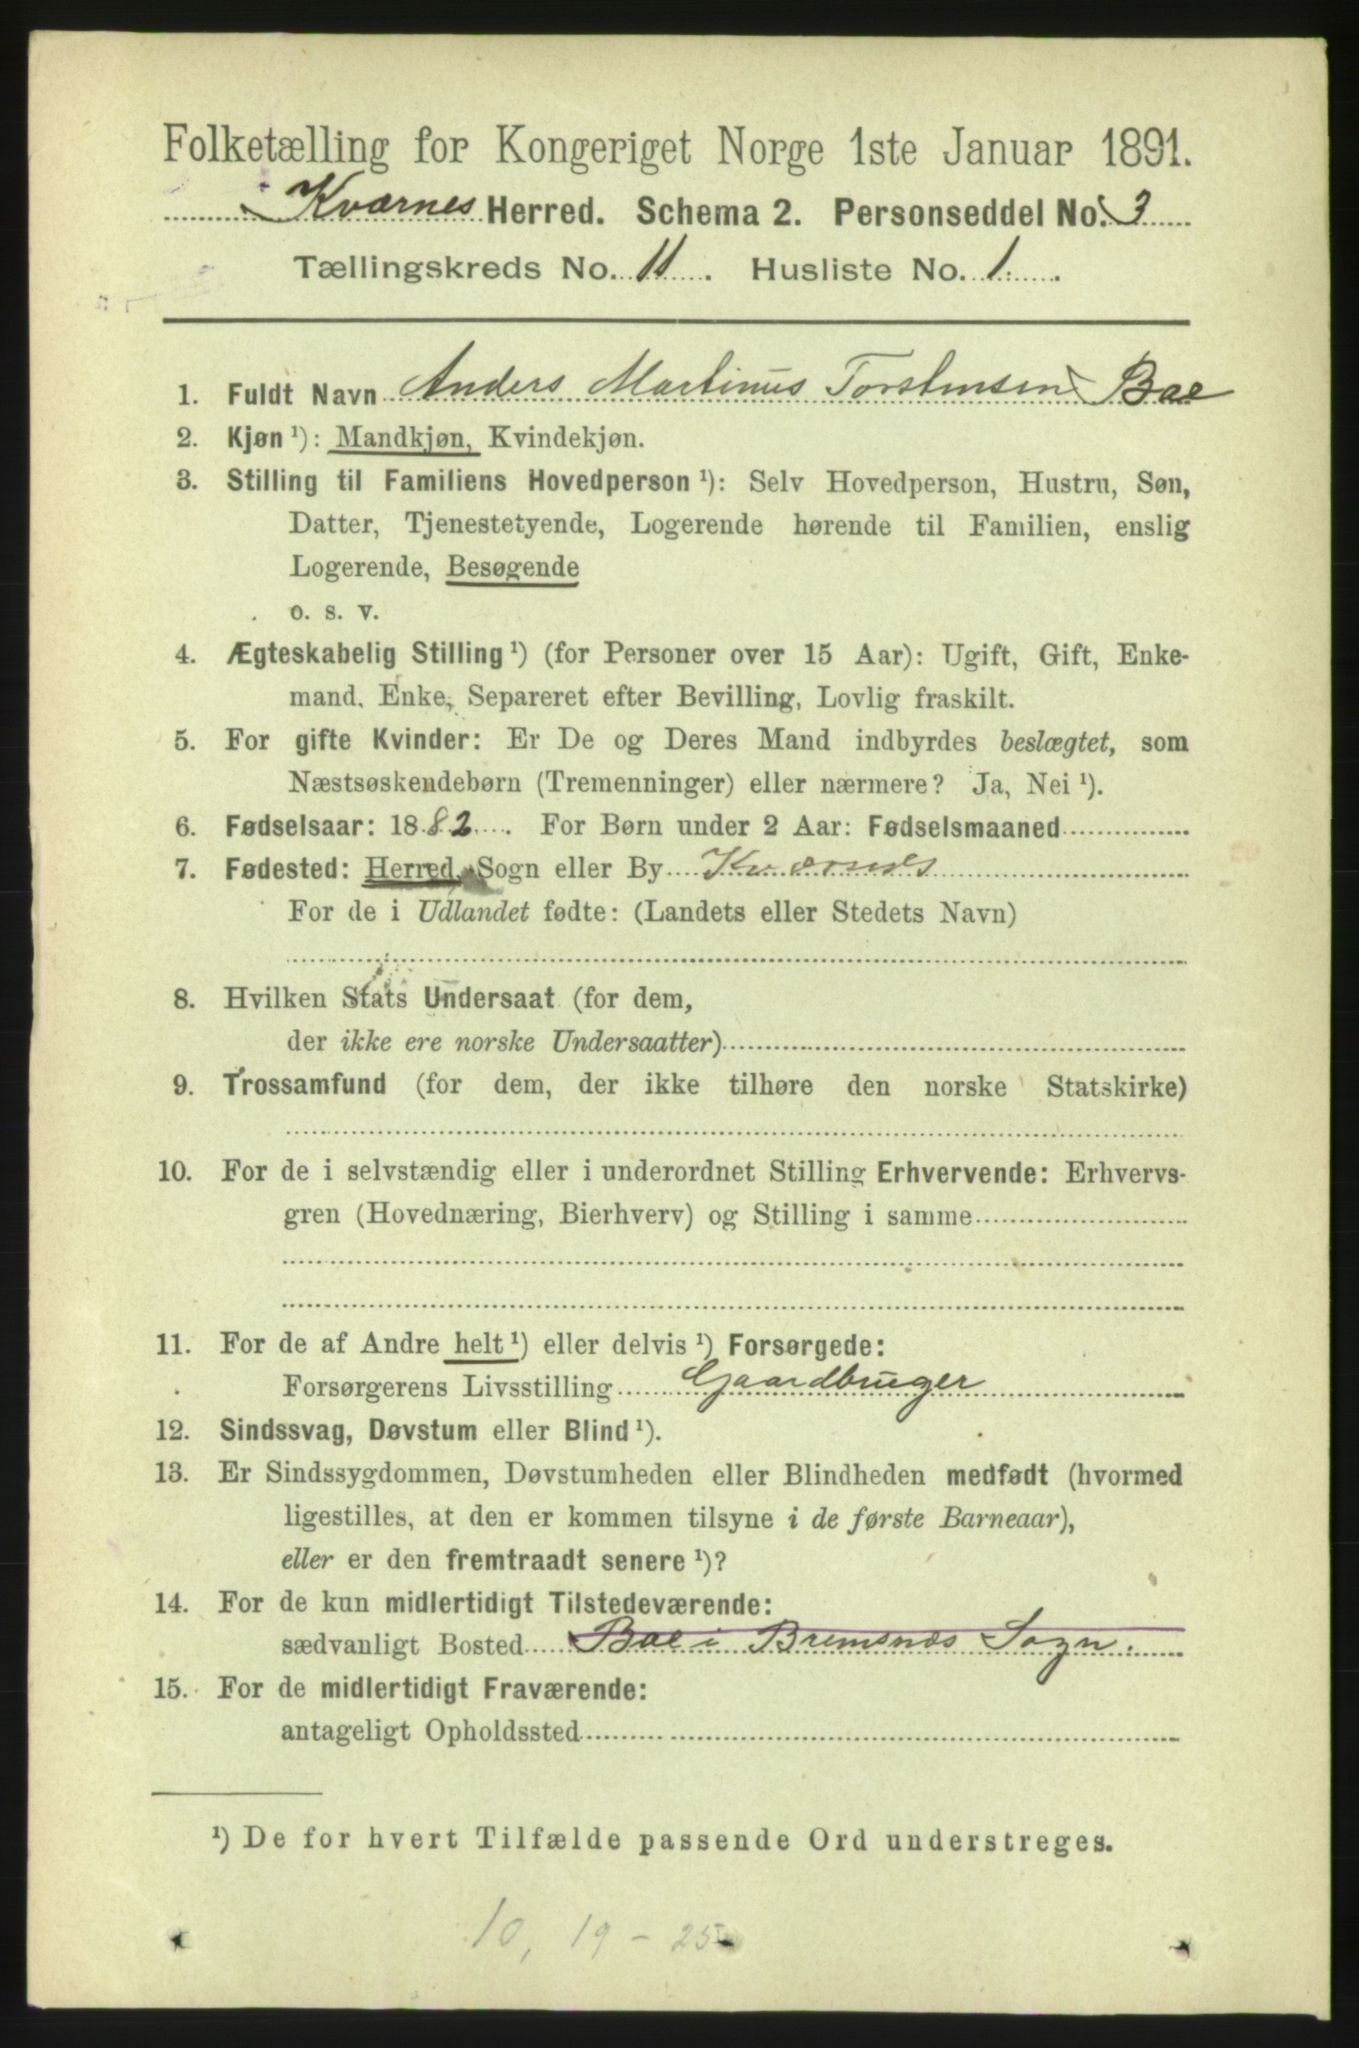 Folketælling for Kongeriget Norge 1ste Januar 1891.
Kværnes Herred. Schema 2. Personseddel No. 3
Tællingskreds No. 11. Husliste No. 1.
1. Fuldt Navn Anders Martinus Torstensen Bae
2. Kjøn ¹): Mandkjøn, Kvindekjøn.
3. Stilling til Familiens Hovedperson ¹): Selv Hovedperson, Hustru, Søn,
Datter, Tjenestetyende, Logerende hørende til Familien, enslig
Logerende, Besøgende
o. s. v.
4. Ægteskabelig Stilling ¹) (for Personer over 15 Aar): Ugift, Gift, Enke-
mand, Enke, Separeret efter Bevilling, Lovlig fraskilt.
5. For gifte Kvinder: Er De og Deres Mand indbyrdes beslægtet, som
Næstsøskendebørn (Tremenninger) eller nærmere? Ja, Nei ¹).
6. Fødselsaar: 1882. For Børn under 2 Aar: Fødselsmaaned
7. Fødested: Herred, Sogn eller By Kværnes
For de i Udlandet fødte: (Landets eller Stedets Navn)
8. Hvilken Stats Undersaat (for dem,
der ikke ere norske Undersaatter)
9. Trossamfund (for dem, der ikke tilhøre den norske Statskirke)
10. For de i selvstændig eller i underordnet Stilling Erhvervende: Erhvervs-
gren (Hovednæring, Bierhverv) og Stilling i samme
11. For de af Andre helt ¹) eller delvis ¹) Forsørgede:
Forsørgerens Livsstilling Gaardbruger
12. Sindssvag, Døvstum eller Blind ¹).
13. Er Sindssygdommen, Døvstumheden eller Blindheden medfødt (hvormed
ligestilles, at den er kommen tilsyne i de første Barneaar),
eller er den fremtraadt senere ¹)?
14. For de kun midlertidigt Tilstedeværende:
sædvanligt Bosted Bae i Bremsnæs Sogn.
15. For de midlertidigt Fraværende:
antageligt Opholdssted
¹) De for hvert Tilfælde passende Ord understreges.
10, 19 - 25